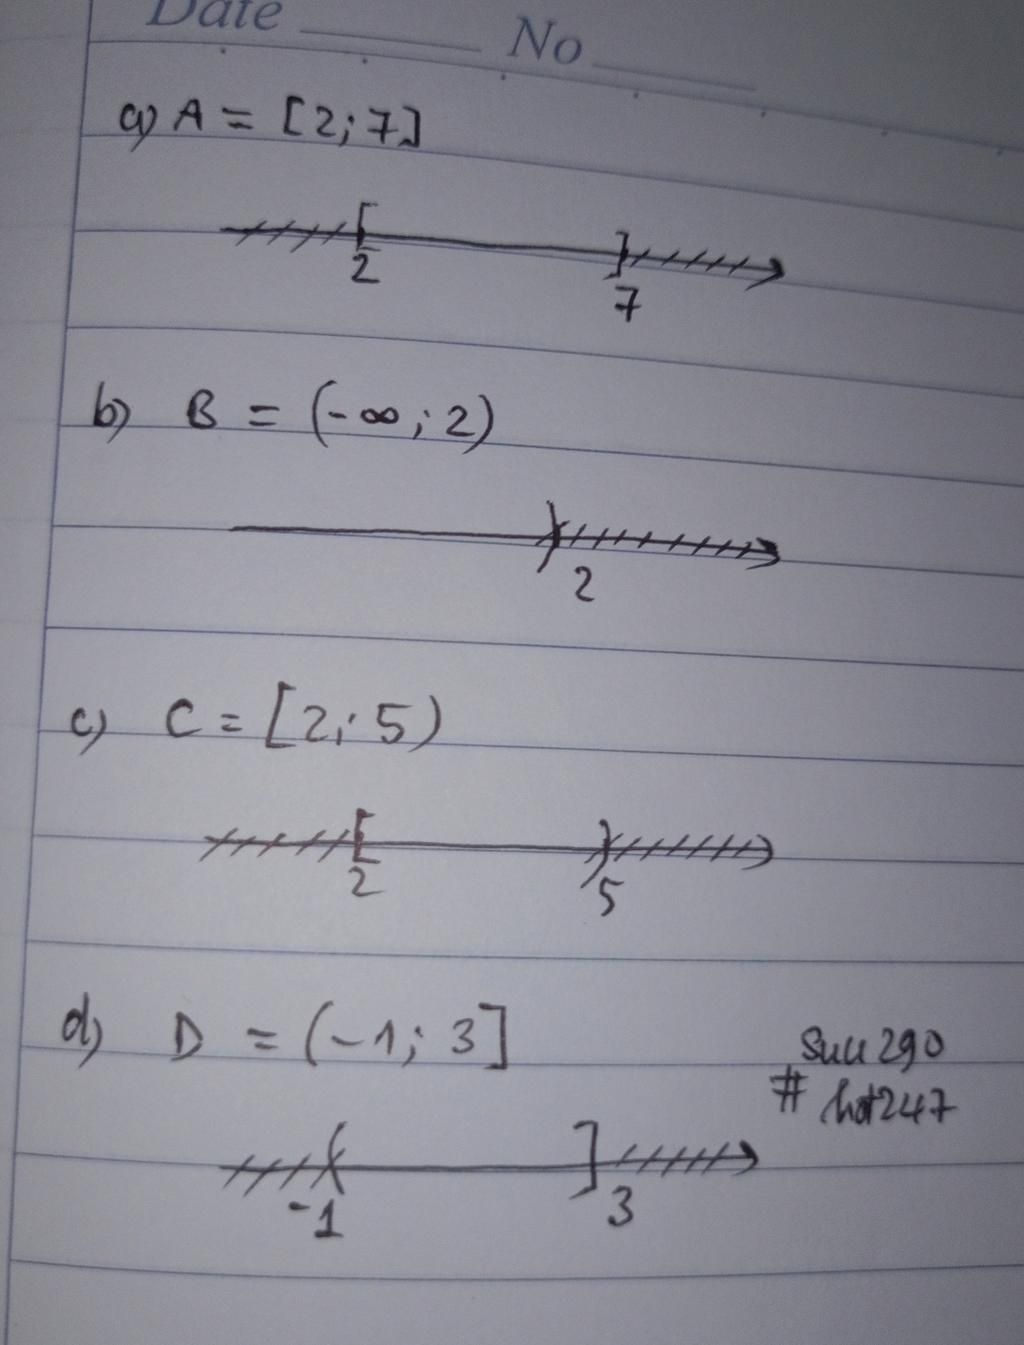 Date No
a) A = [2; 7]
2 7
b) B = (-∞; 2)
2
c) C = [2; 5)
2 5
d) D = (-1; 3]
Suu290
# hot247
-1 3